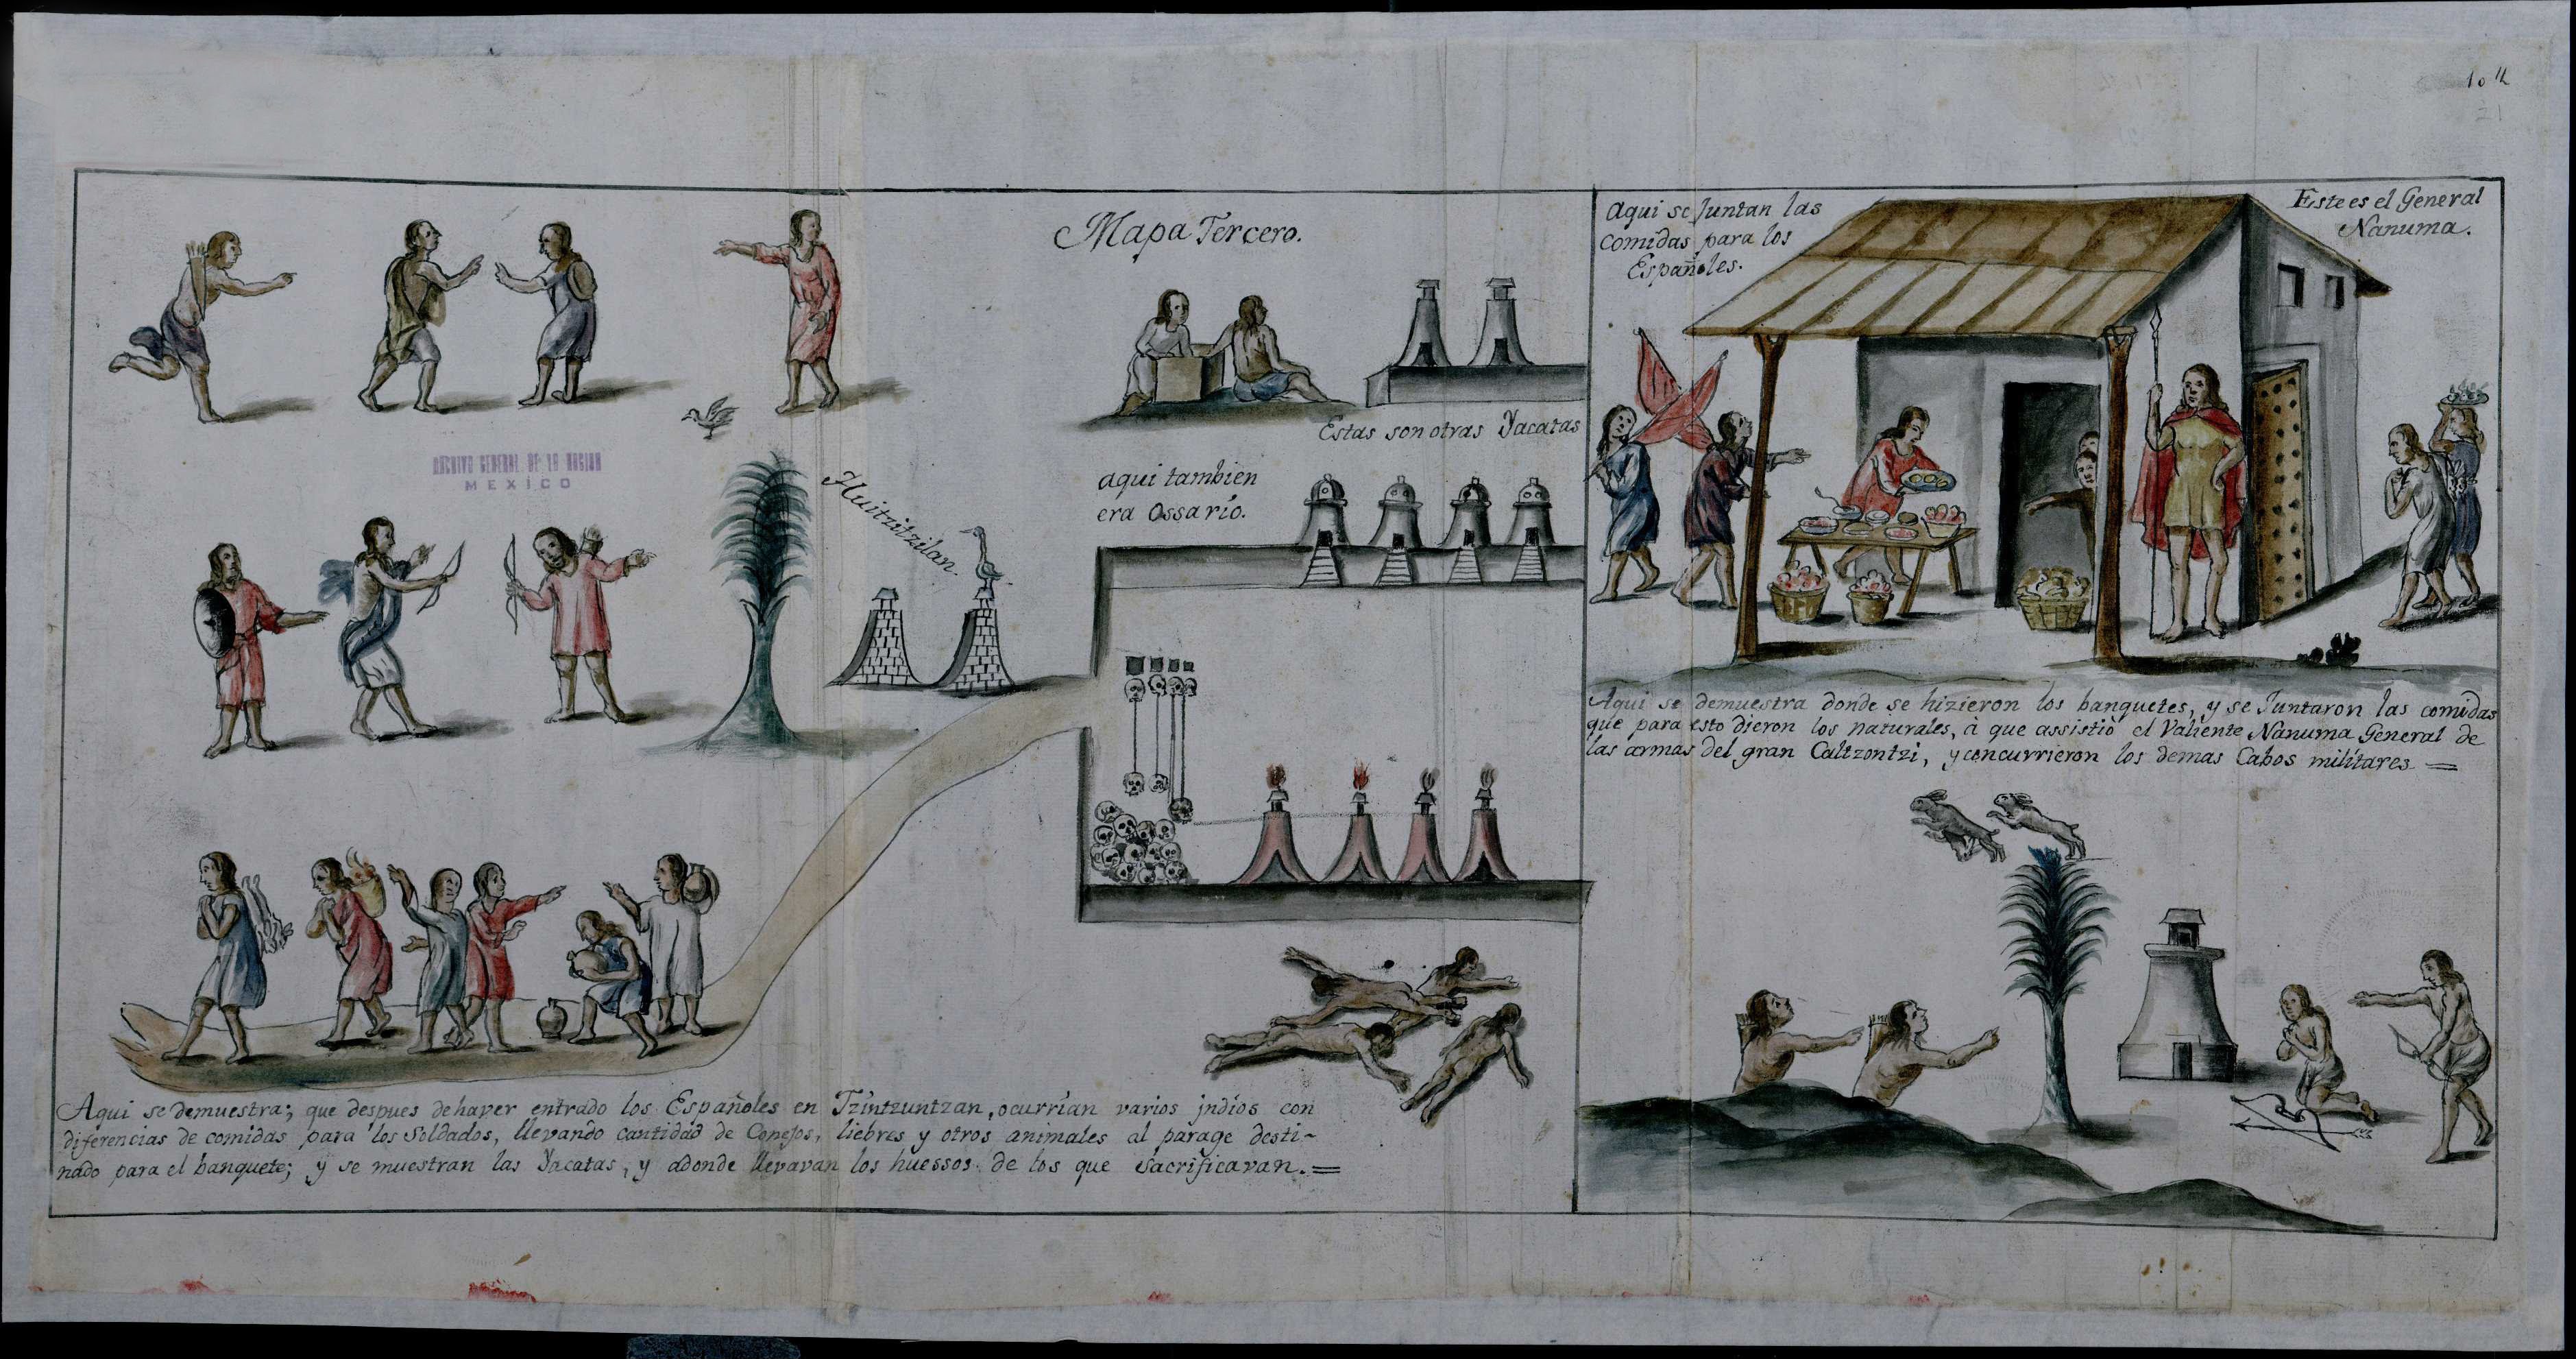 104
21
Mapa Tercero.
Aqui se Juntan las
Comidas para los
Españoles.
Este es el General
Nanuma.
ARCHIVO GENERAL DE LA NACION
MEXICO
Huitzitzilan.
Estas son otras Yacatas
aqui tambien
era Ossario.
Aqui se demuestra donde se hizieron los banquetes, y se Juntaron las comidas
que para esto dieron los naturales, à que assistiò el Valiente Nanuma General de
las armas del gran Caltzontzi, y concurrieron los demas Cabos militares =
Aqui se demuestra; que despues de haver entrado los Españoles en Tzintzuntzan, ocurrian varios jndios con
diferencias de comidas para los Soldados, llevando cantidad de Conejos, liebres y otros animales al parage desti~
nado para el banquete; y se muestran las Yacatas, y adonde llevavan los huessos de los que Sacrificavan. =